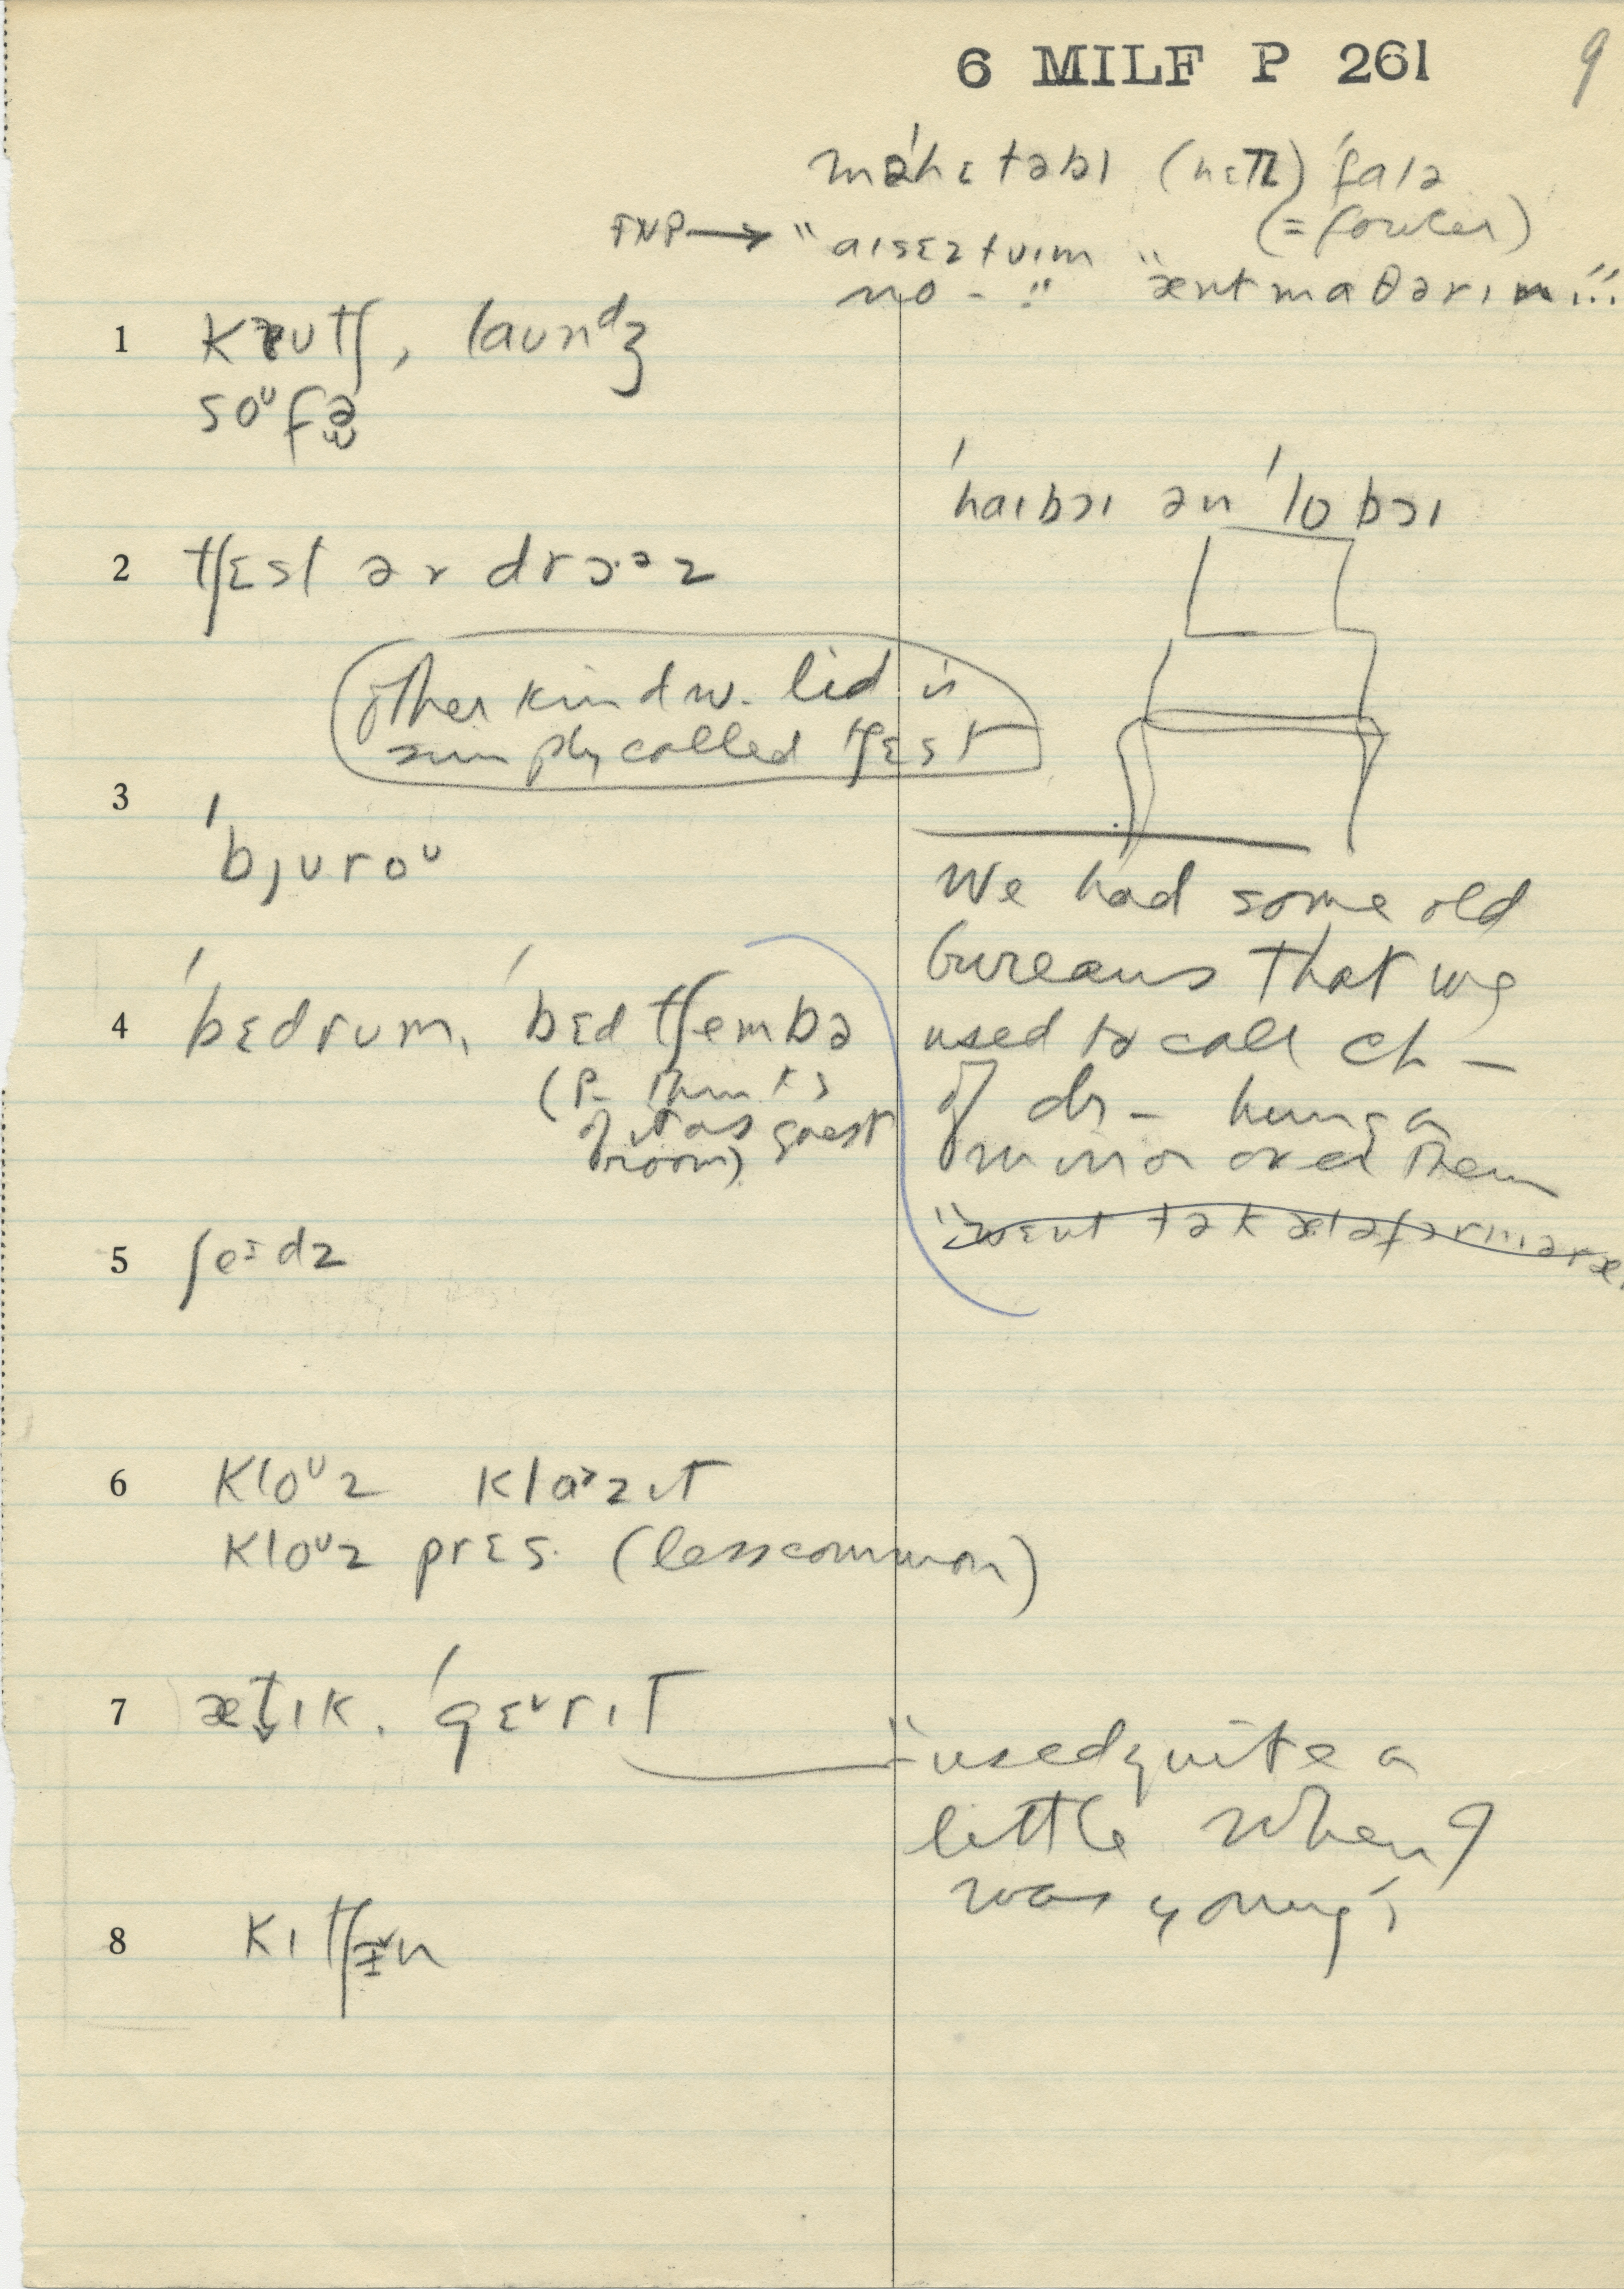 6 MILF P 261
9
(= fowler)
no - ."
1
kɐutʃ, launᵈʒ
soᵘfə
ˈhaɪbɔɪ ən ˈlobɔɪ
2 tʃɛst ər drɔ·ᵊz
other kind w. lid is
simply called tʃɛst
3
ˈbȷuroᵘ
We had some old
bureaus that we
used to call ch –
of dr – hung a
mirror over them
4 ˈbɛdrum, ˈbɛdtʃembə
(P. thinks
of it as guest
room)
5 ʃeᶦdz
6 kloᵘz klazɪt
kloᵘz prɛs. (less common)
7 ætɪk, ˈgɛrɪt
"used quite a
little when I
was young"
8 kɪtʃɪn